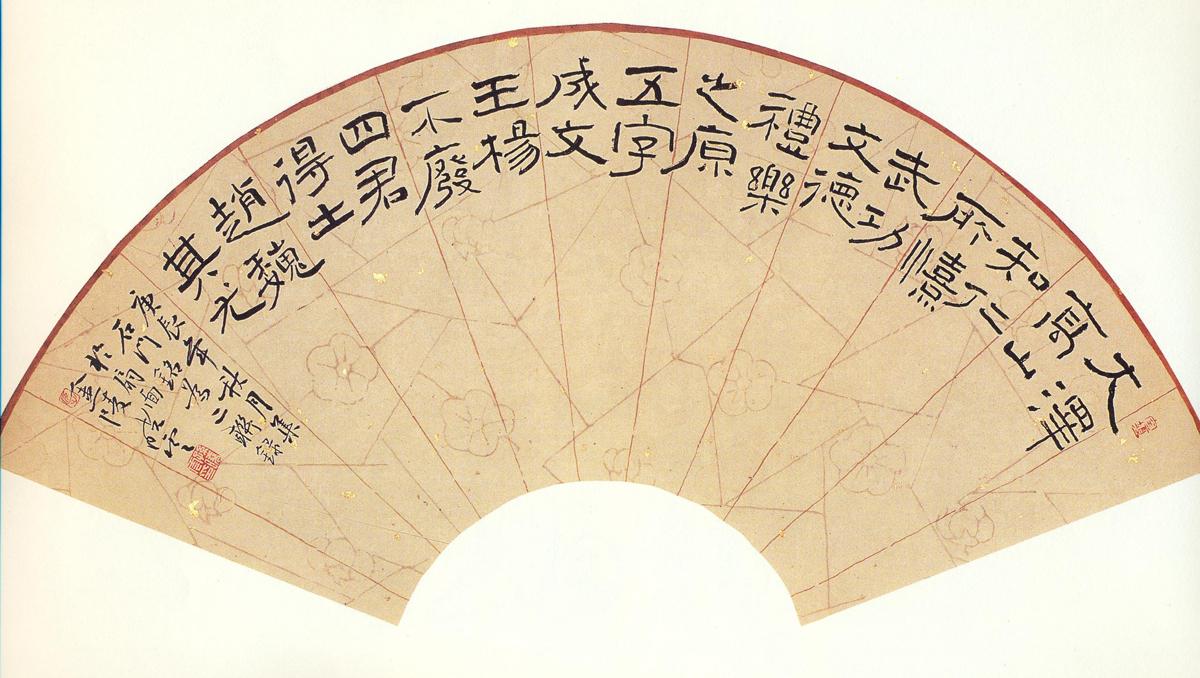 大澤
高山
知仁
所憙
武功
文德
禮樂
之原
五字
成文
王楊
不廢
四君
得士
趙魏
其尤
庚辰年秋月集
石門銘為二聯錄
於扇面
金陵